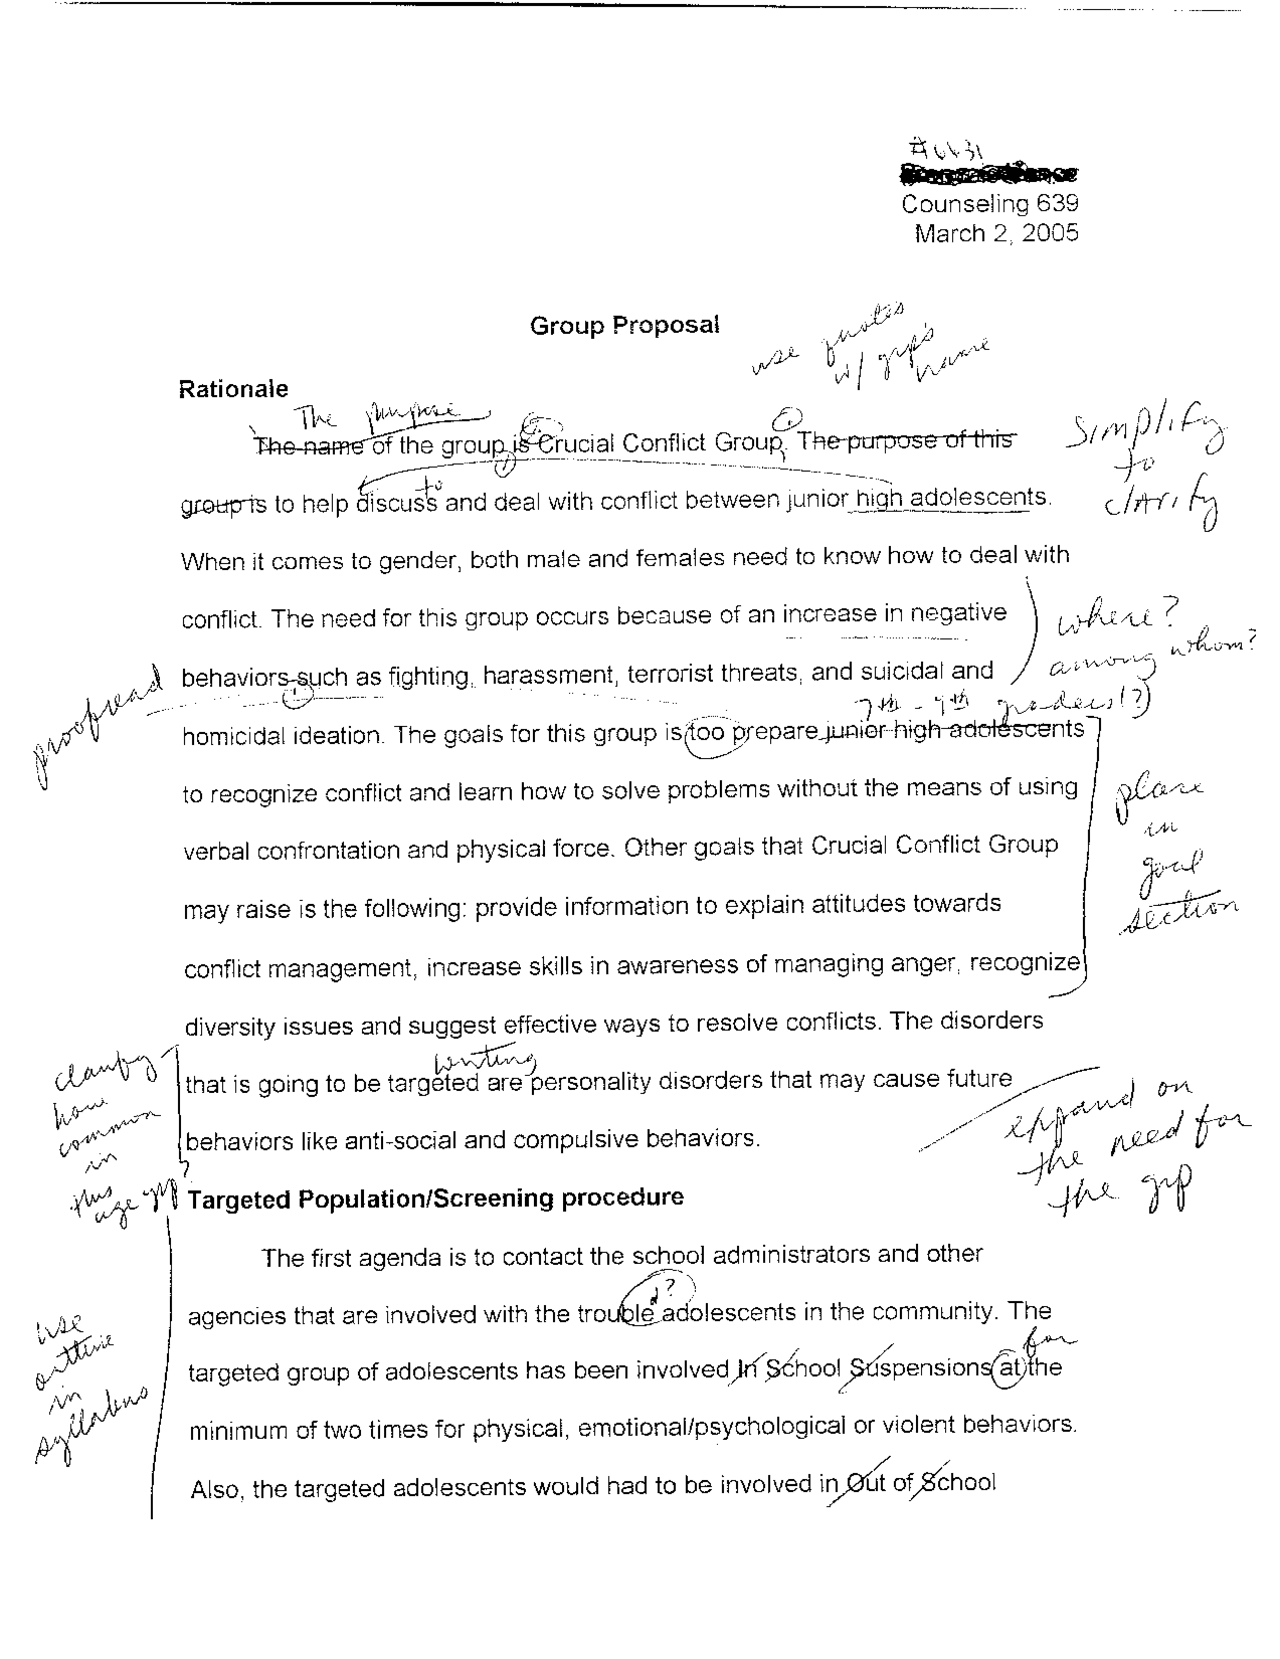 #6631
Counseling 639
March 2, 2005
Group Proposal
use quotes
w/ grp's
name
Rationale
The purpose
The name of the group is Crucial Conflict Group. The purpose of this
simplify
to
clarify
to
group is to help discuss and deal with conflict between junior high adolescents.
When it comes to gender, both male and females need to know how to deal with
conflict. The need for this group occurs because of an increase in negative
where?
among whom?
proofread
behaviors such as fighting, harassment, terrorist threats, and suicidal and
7th - 9th graders(?)
homicidal ideation. The goals for this group is too prepare junior high adolescents
to recognize conflict and learn how to solve problems without the means of using
place
in
goal
section
verbal confrontation and physical force. Other goals that Crucial Conflict Group
may raise is the following: provide information to explain attitudes towards
conflict management, increase skills in awareness of managing anger, recognize
diversity issues and suggest effective ways to resolve conflicts. The disorders
clarify
how
common
in
this
age grp?
that is going to be targeted are personality disorders that may cause future
expand on
the need for
the grp
behaviors like anti-social and compulsive behaviors.
Targeted Population/Screening procedure
The first agenda is to contact the school administrators and other
d?
agencies that are involved with the trouble adolescents in the community. The
use
outline
in
syllabus
for
targeted group of adolescents has been involved In School Suspensions at the
minimum of two times for physical, emotional/psychological or violent behaviors.
Also, the targeted adolescents would had to be involved in Out of School